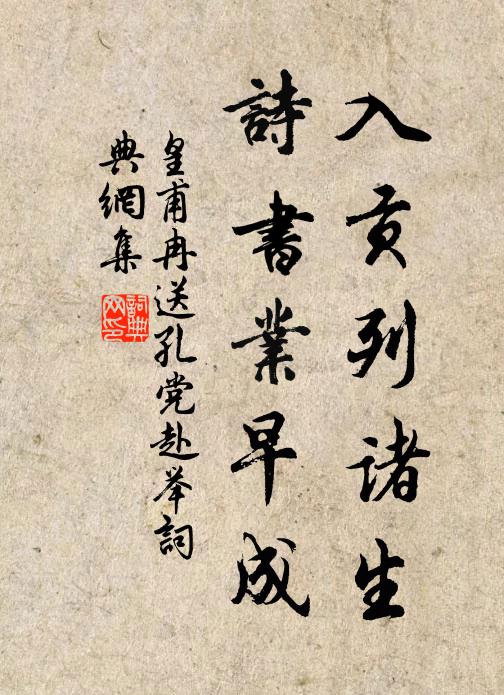 入贡列诸生
詩書業早成
皇甫冉送孔党赴举詞
典網集
詞典
网印